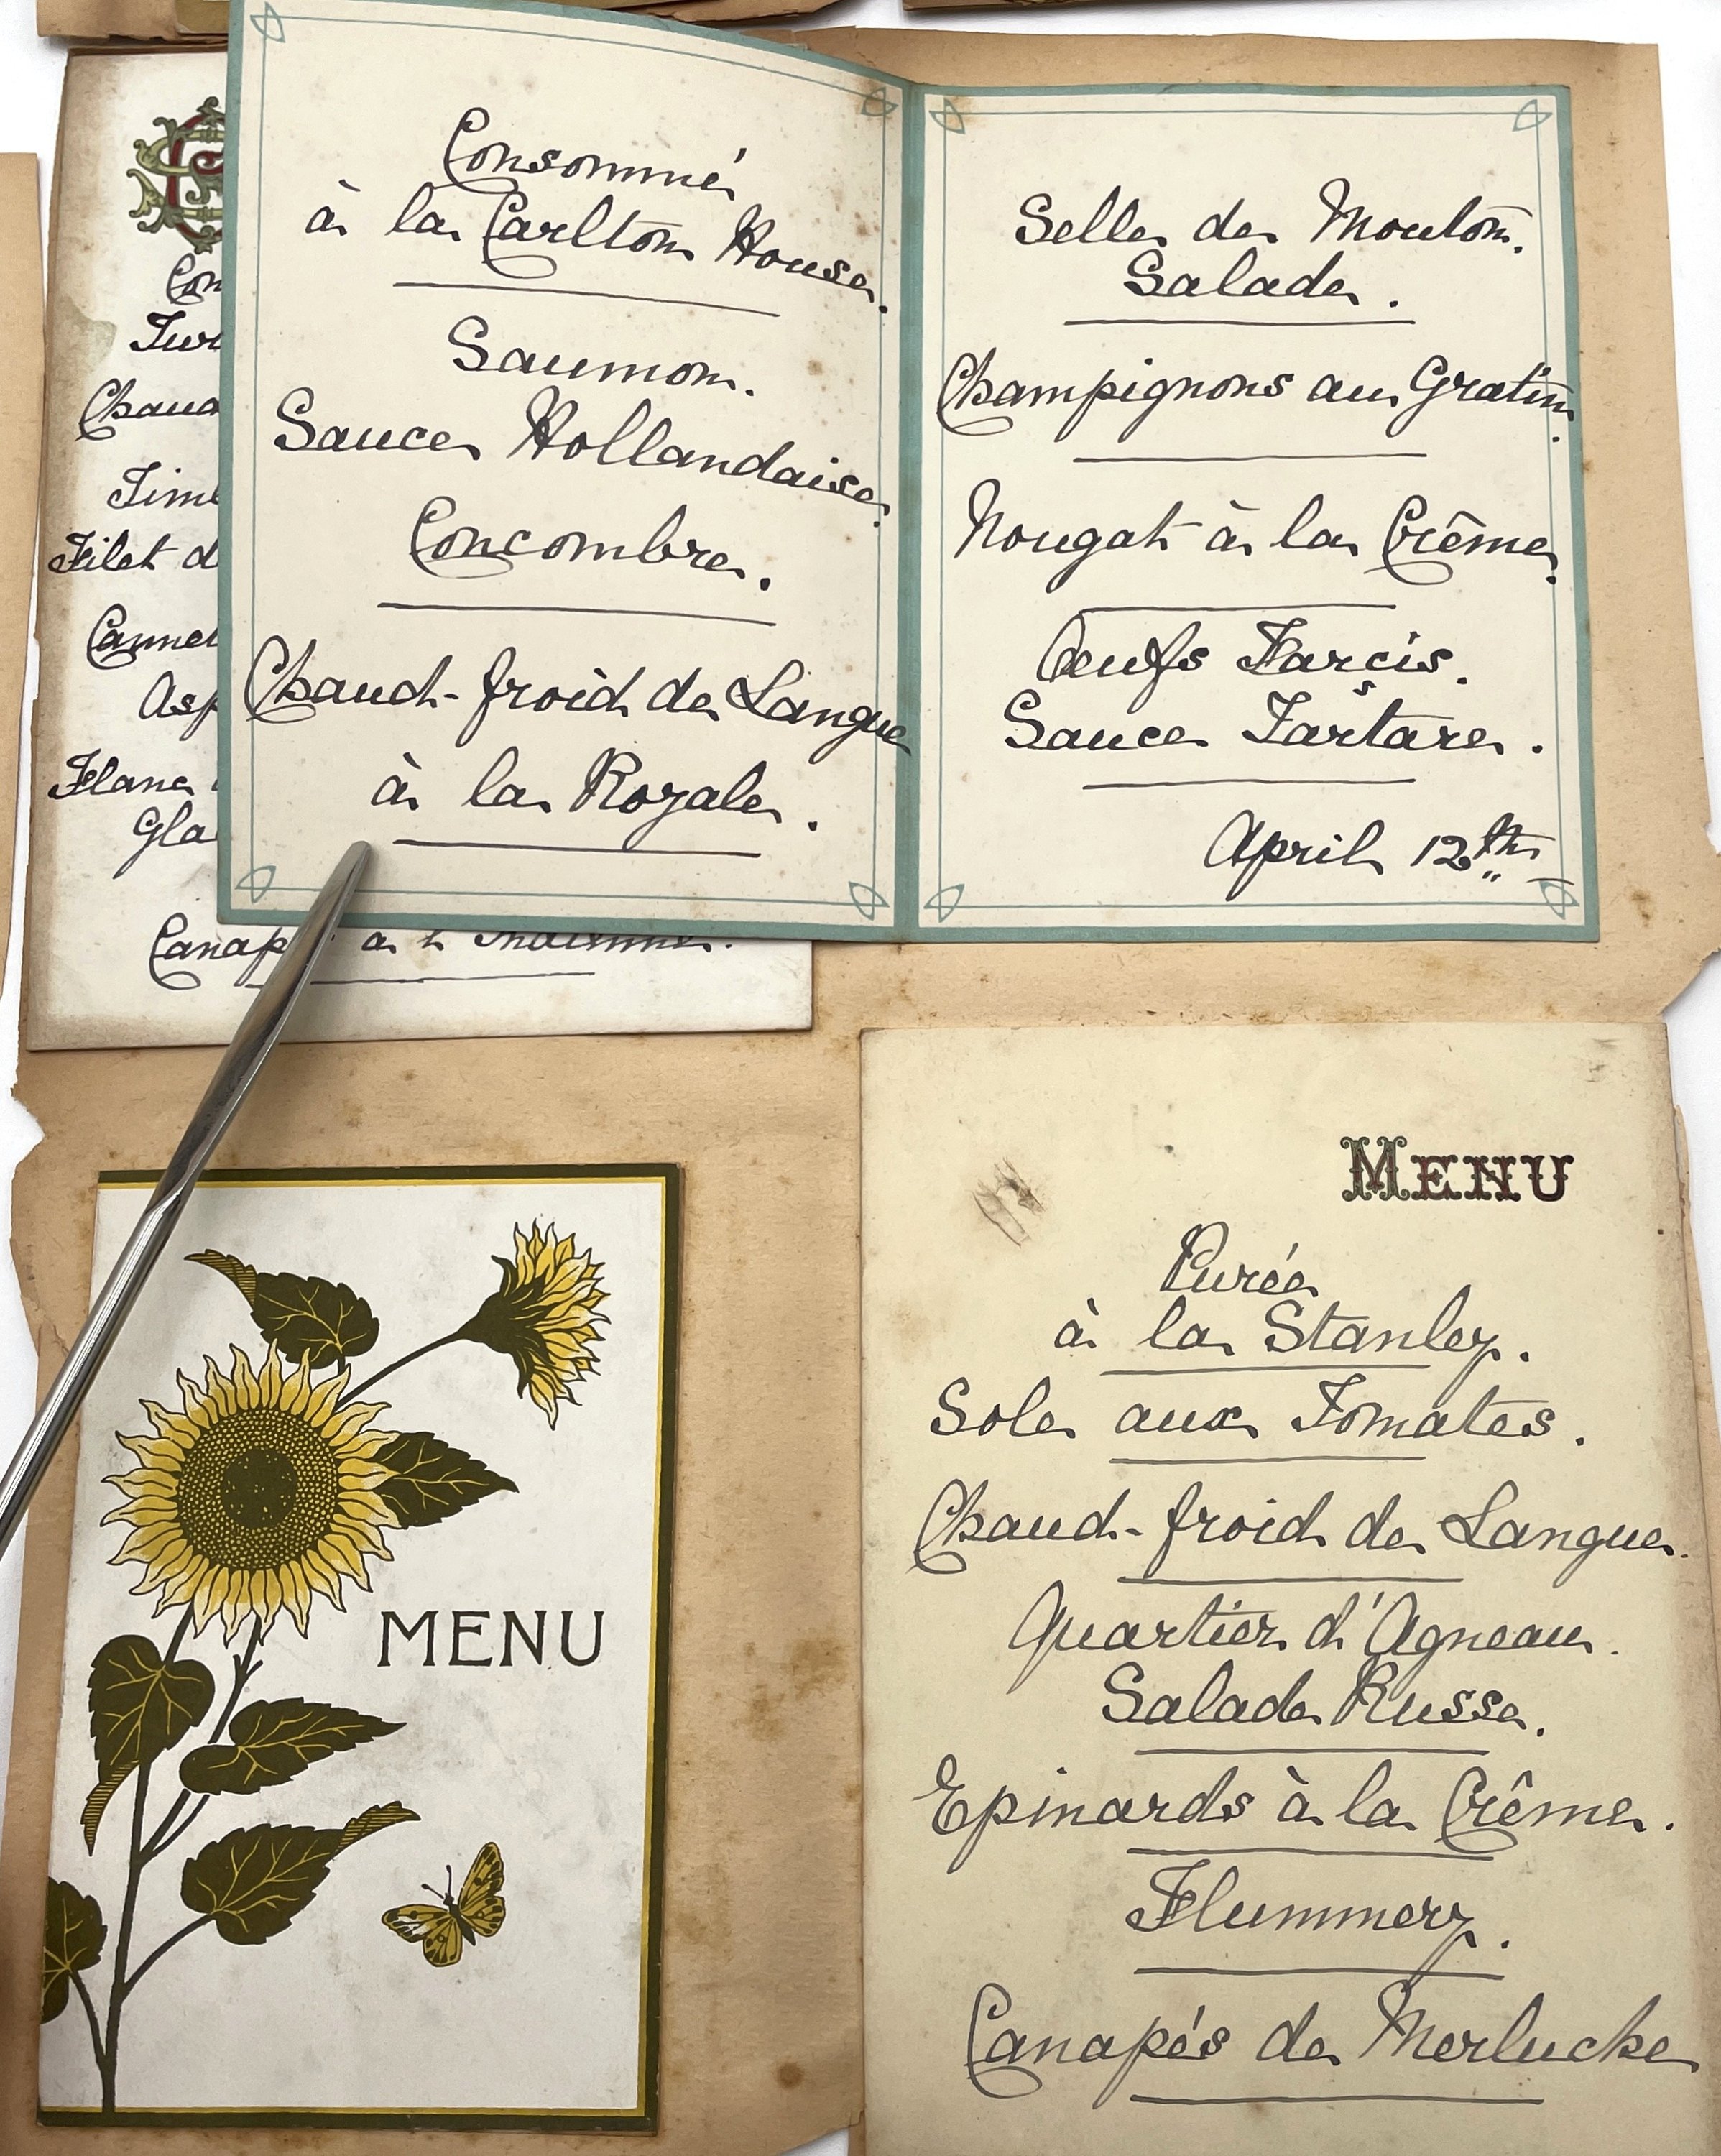 Consommé
à la Carlton House.
Saumon.
Sauce Hollandaise.
Concombre.
Chaud-froid de Langue
à la Royale.
Selle de Mouton.
Salade.
Champignons au Gratin.
Nougat à la Crême.
Oeufs Farcis.
Sauce Tartare.
April 12th
Filet d
Canapé à l'Indienne.
MENU
MENU
Purée
à la Stanley.
Sole aux Tomates.
Chaud-froid de Langue.
Quartier d'Agneau.
Salade Russe.
Epinards à la Crême.
Flummery.
Canapés de Merluche